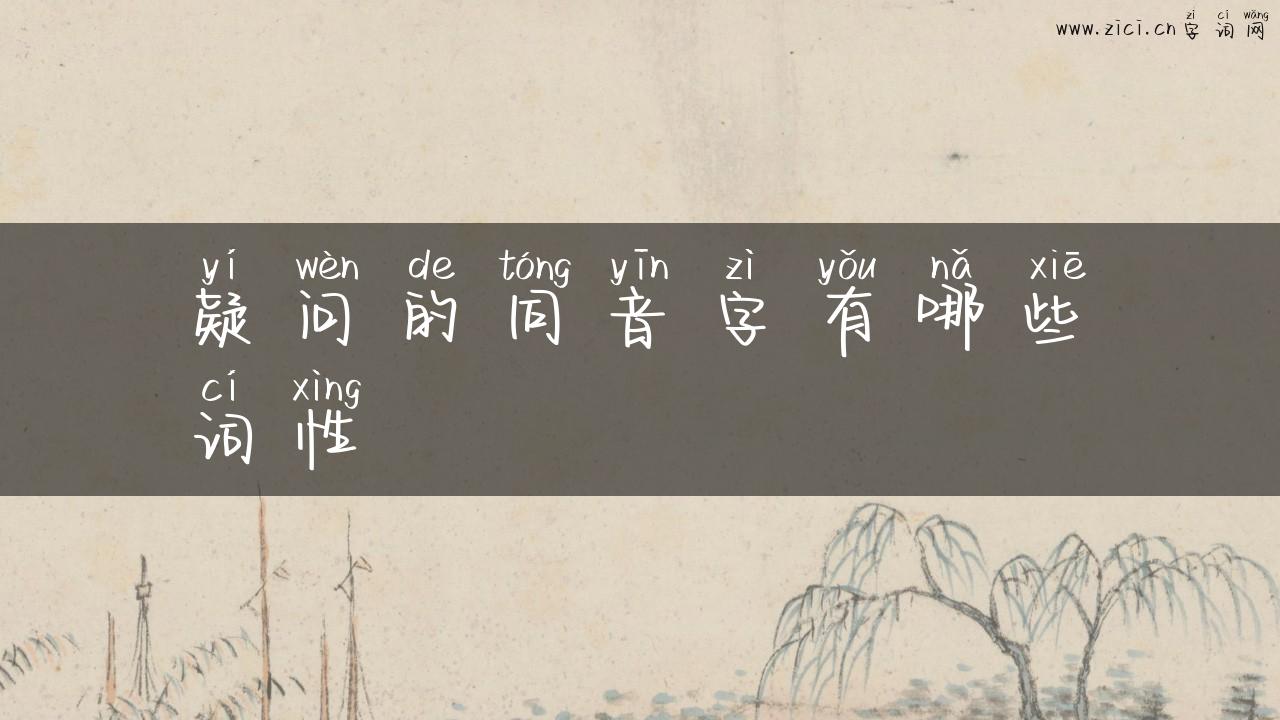 zì cí wǎng
www.zici.cn 字词网
yí wèn de tóng yīn zì yǒu nǎ xiē
疑问的同音字有哪些
cí xìng
词性